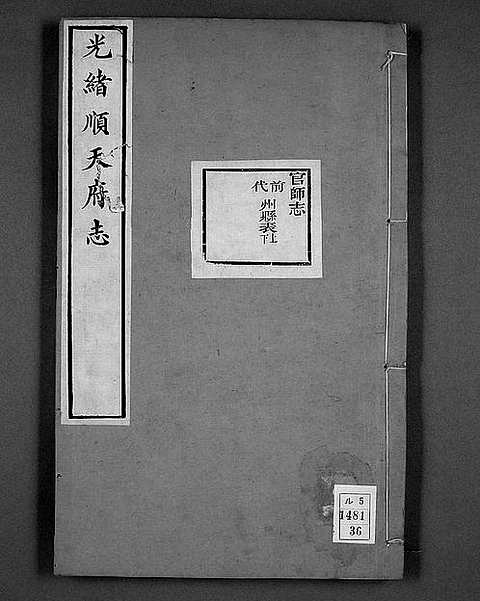 光緒順天府志
官師志
前代
州縣表上下
ル 5
1481
36